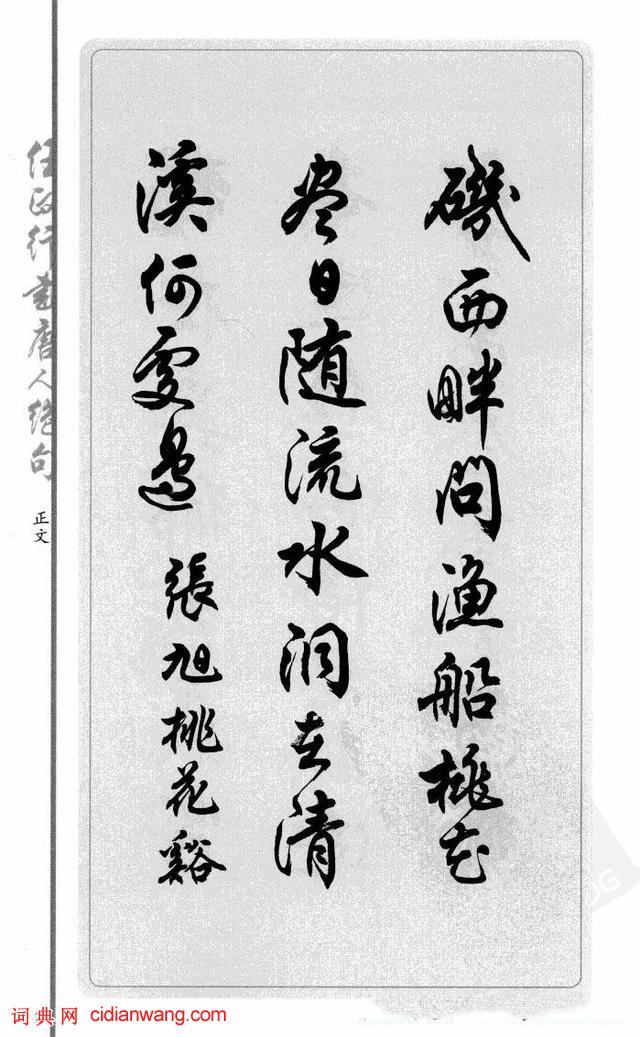 磯西畔問漁船桃花
尽日随流水洞在清
溪何處邊 張旭桃花谿
任政行書唐人絕句
正文
词典网 cidianwang.com